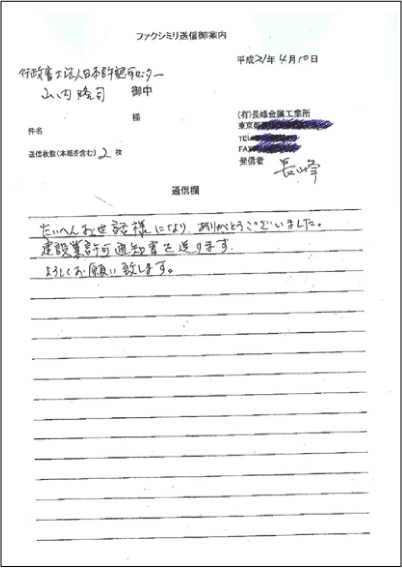 ファクシミリ送信御案内
平成21年4月10日
行政書士法人日本許認可センター
山内隆司 御中
様
(有)長峰金属工業所
件名
東京
TEL
送信枚数(本紙を含む) 2 枚
FAX
発信者 長峰
通信欄
たいへんお世話様になり ありがとうございました。
建設業許可通知書を送ります
よろしくお願い致します。